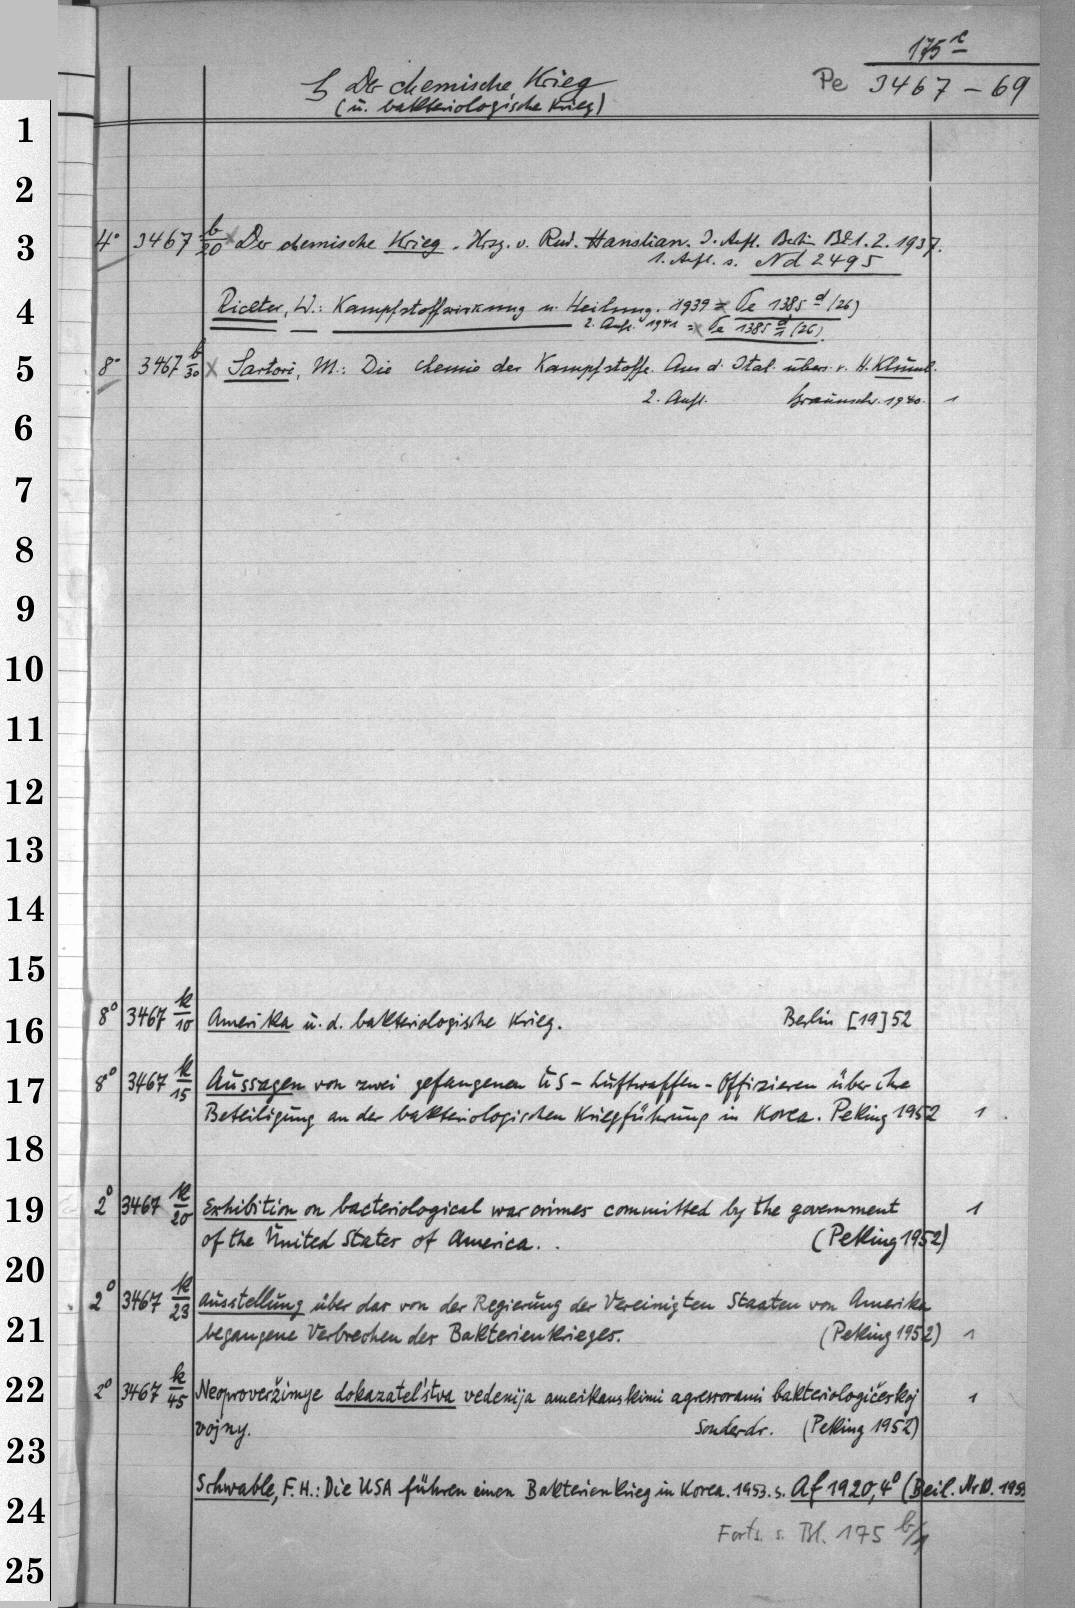 175
Pe 3467-69
Der chemische Krieg
(u. bakteriologische Krieg)
1
2
3
4° 3467 b/20 x Der chemische Krieg. Hrsg. v. Rud. Hanslian. 3. Aufl. Berlin Bd 1. 2. 1937.
1. Aufl. s. Nd 2495
4
Richter, W.: Kampfstoffwirkung u. Heilung. 1939 = Te 1385 d (26)
2. Aufl. 1941 = Te 1385 d/1 (26).
5
8° 3467 b/30 x Sartori, M.: Die Chemie der Kampfstoffe. Aus d. Ital. übers. v. H. Klumb.
6
2. Aufl. Braunschw. 1940. 1
7
8
9
10
11
12
13
14
15
16
8° 3467 k/10 Amerika u. d. bakteriologische Krieg. Berlin [19]52
17
8° 3467 k/15 Aussagen von zwei gefangenen US-Luftwaffen-Offizieren über ihre
Beteiligung an der bakteriologischen Kriegführung in Korea. Peking 1952 1
18
19
2° 3467 k/20 Exhibition on bacteriological war crimes committed by the government 1
of the United States of America. (Peking 1952)
20
2° 3467 k/23 Ausstellung über das von der Regierung der Vereinigten Staaten von Amerika
21
begangene Verbrechen des Bakterienkrieges. (Peking 1952) 1
22
2° 3467 k/45 Neoproveržimye dokazatel'stva vedenija amerikanskimi agressorami bakteriologičeskoj 1
vojny. Sonderdr. (Peking 1952)
23
Schwable, F. H.: Die USA führen einen Bakterienkrieg in Korea. 1953. s. Af 1920, 4° (Beil. Nr 10. 195
24
Forts. s. Bl. 175 b/1
25